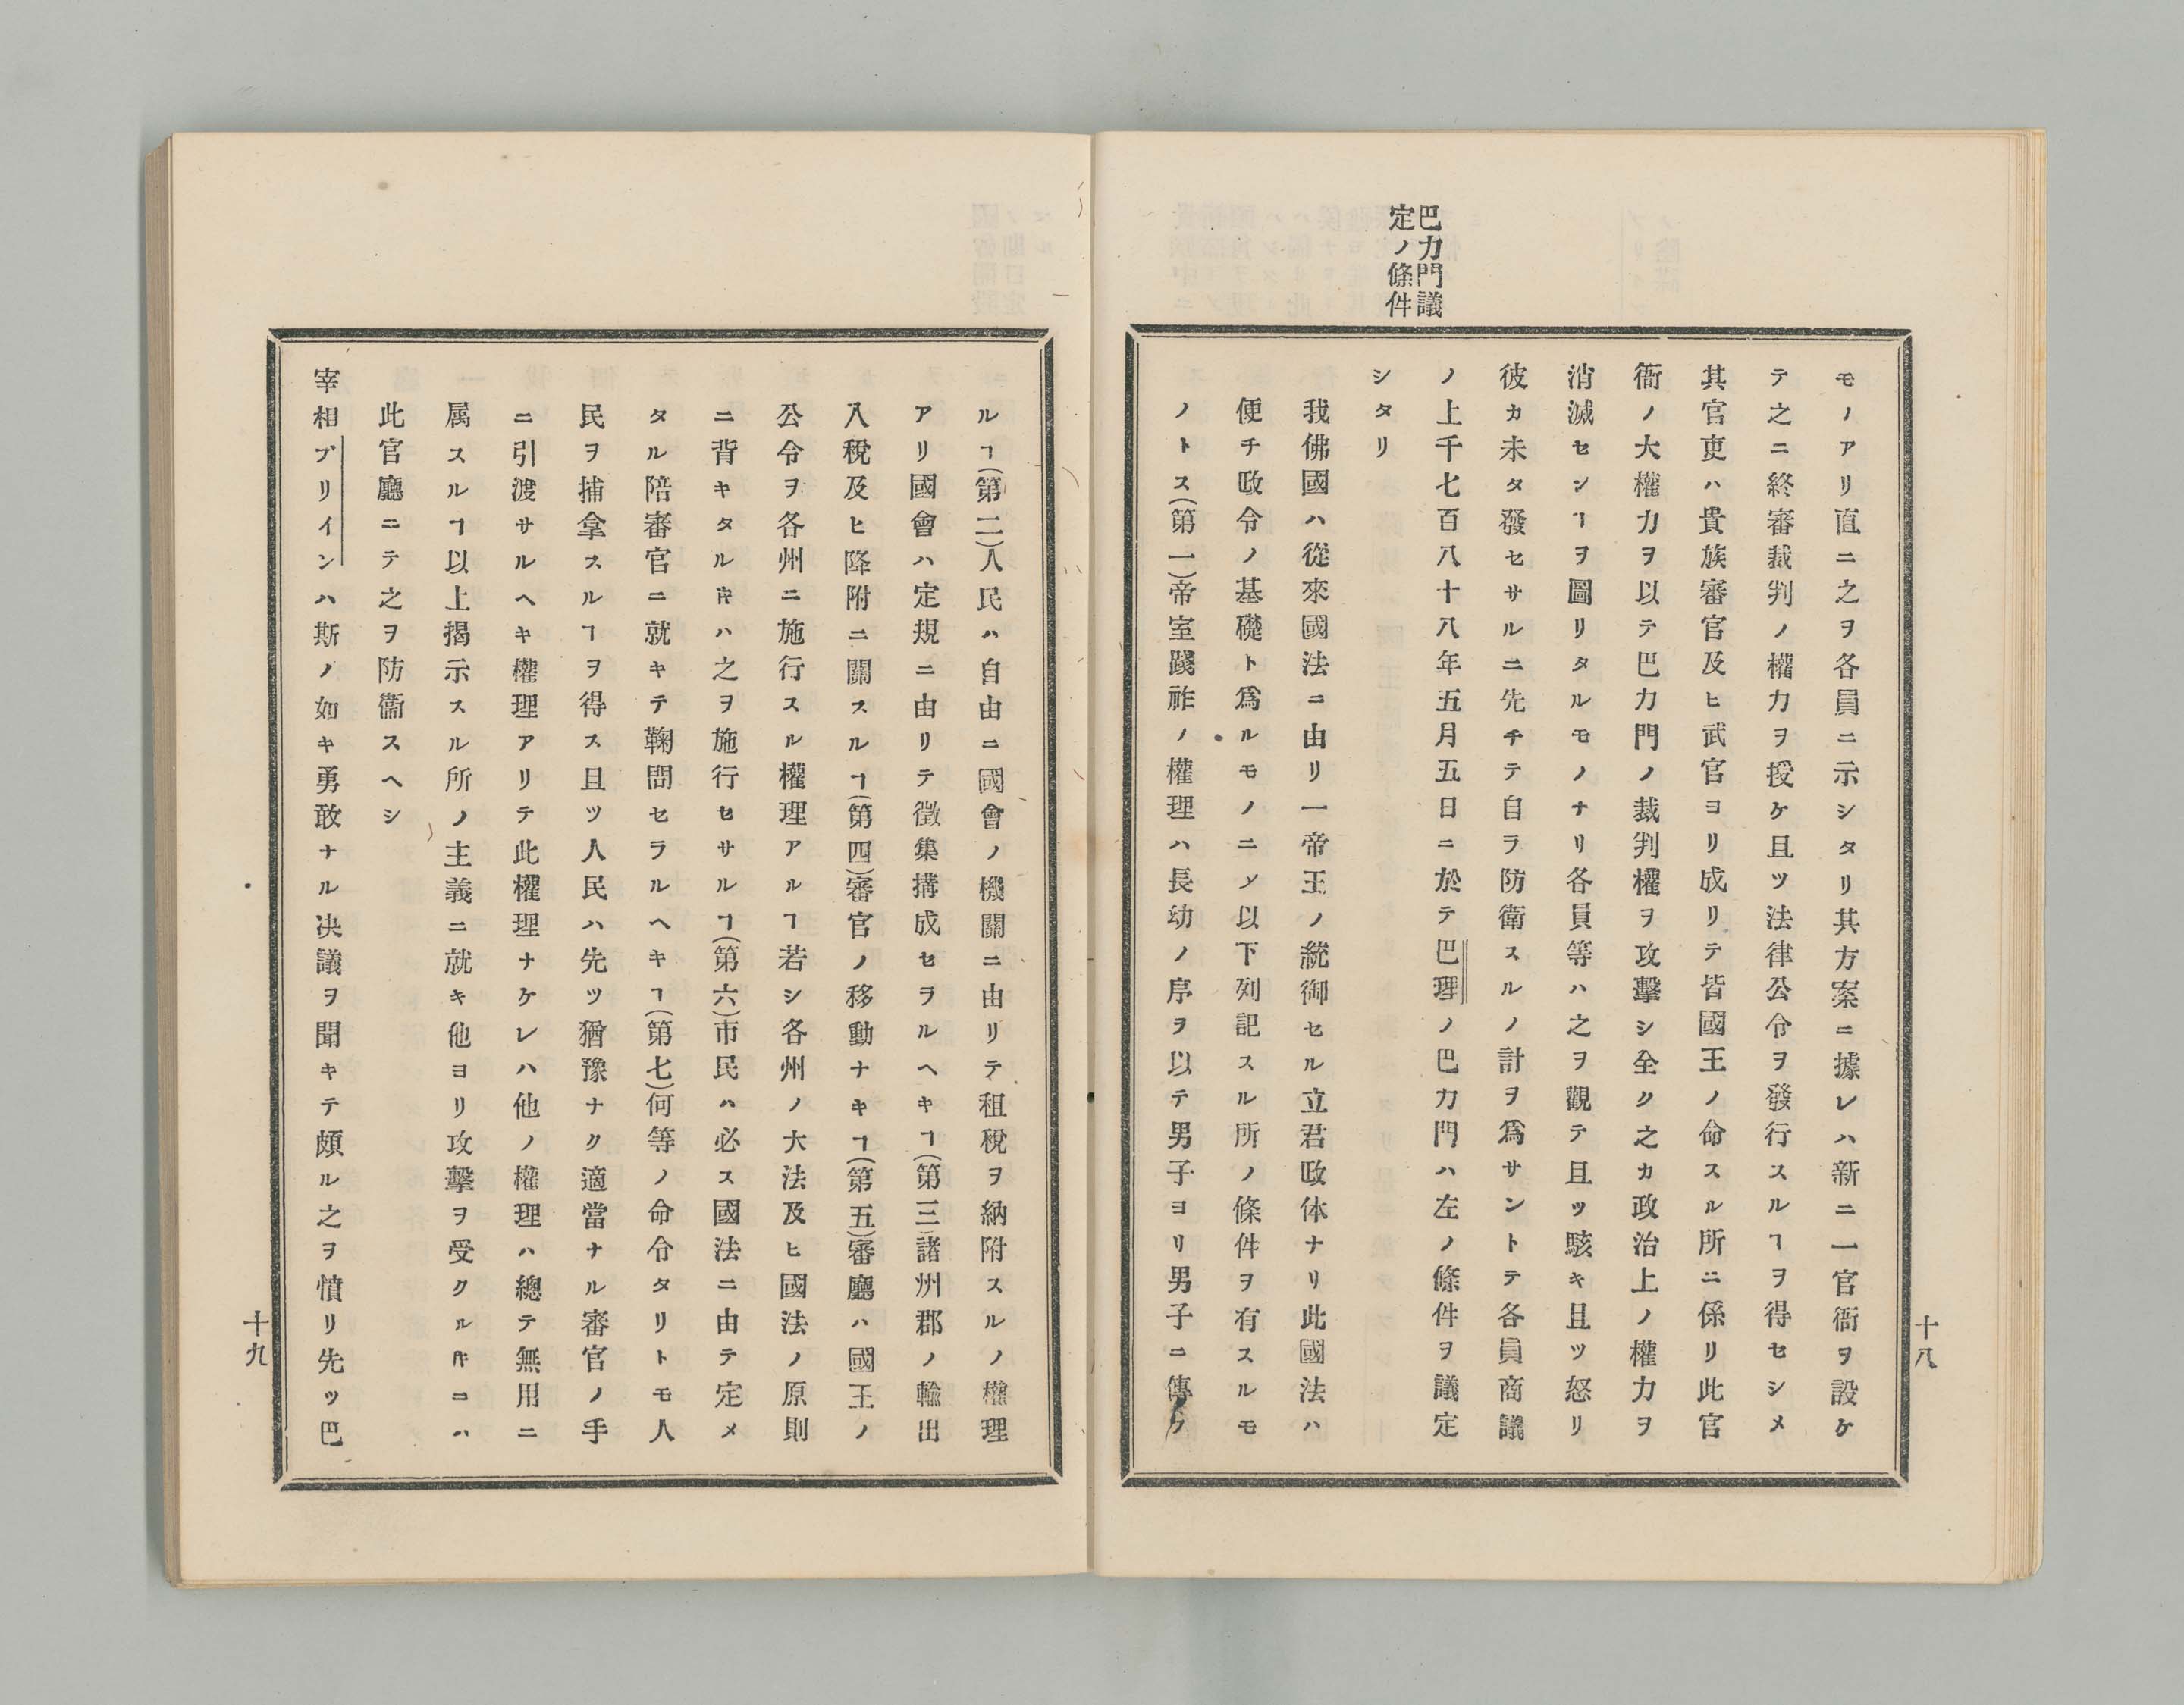 巴力門議
定ノ條件
モノアリ直ニ之ヲ各員ニ示シタリ其方案ニ據レハ新ニ一官衙ヲ設ケ
テ之ニ終審裁判ノ權力ヲ授ケ且ツ法律公令ヲ發行スルヿヲ得セシメ
其官吏ハ貴族審官及ヒ武官ヨリ成リテ皆國王ノ命スル所ニ係リ此官
衙ノ大權力ヲ以テ巴力門ノ裁判權ヲ攻擊シ全ク之カ政治上ノ權力ヲ
消滅センヿヲ圖リタルモノナリ各員等ハ之ヲ觀テ且ツ駭キ且ツ怒リ
彼カ未タ發セサルニ先チテ自ラ防衛スルノ計ヲ爲サントテ各員商議
ノ上千七百八十八年五月五日ニ於テ巴理ノ巴力門ハ左ノ條件ヲ議定
シタリ
我佛國ハ從來國法ニ由リ一帝王ノ統御セル立君政体ナリ此國法ハ
便チ政令ノ基礎ト爲ルモノニ〆以下列記スル所ノ條件ヲ有スルモ
ノトス(第一)帝室踐祚ノ權理ハ長幼ノ序ヲ以テ男子ヨリ男子ニ傳フ
十八
ルヿ(第二)人民ハ自由ニ國會ノ機關ニ由リテ租稅ヲ納附スルノ權理
アリ國會ハ定規ニ由リテ徵集搆成セラルヘキヿ(第三)諸州郡ノ輸出
入稅及ヒ降附ニ關スルヿ(第四)審官ノ移動ナキヿ(第五)審廳ハ國王ノ
公令ヲ各州ニ施行スル權理アルヿ若シ各州ノ大法及ヒ國法ノ原則
ニ背キタルキハ之ヲ施行セサルヿ(第六)市民ハ必ス國法ニ由テ定メ
タル陪審官ニ就キテ鞠問セラルヘキヿ(第七)何等ノ命令タリトモ人
民ヲ捕拿スルヿヲ得ス且ツ人民ハ先ツ猶豫ナク適當ナル審官ノ手
ニ引渡サルヘキ權理アリテ此權理ナケレハ他ノ權理ハ總テ無用ニ
属スルヿ以上揭示スル所ノ主義ニ就キ他ヨリ攻擊ヲ受クルキニハ
此官廳ニテ之ヲ防衞スヘシ
宰相ブリインハ斯ノ如キ勇敢ナル决議ヲ聞キテ頗ル之ヲ憤リ先ツ巴
十九